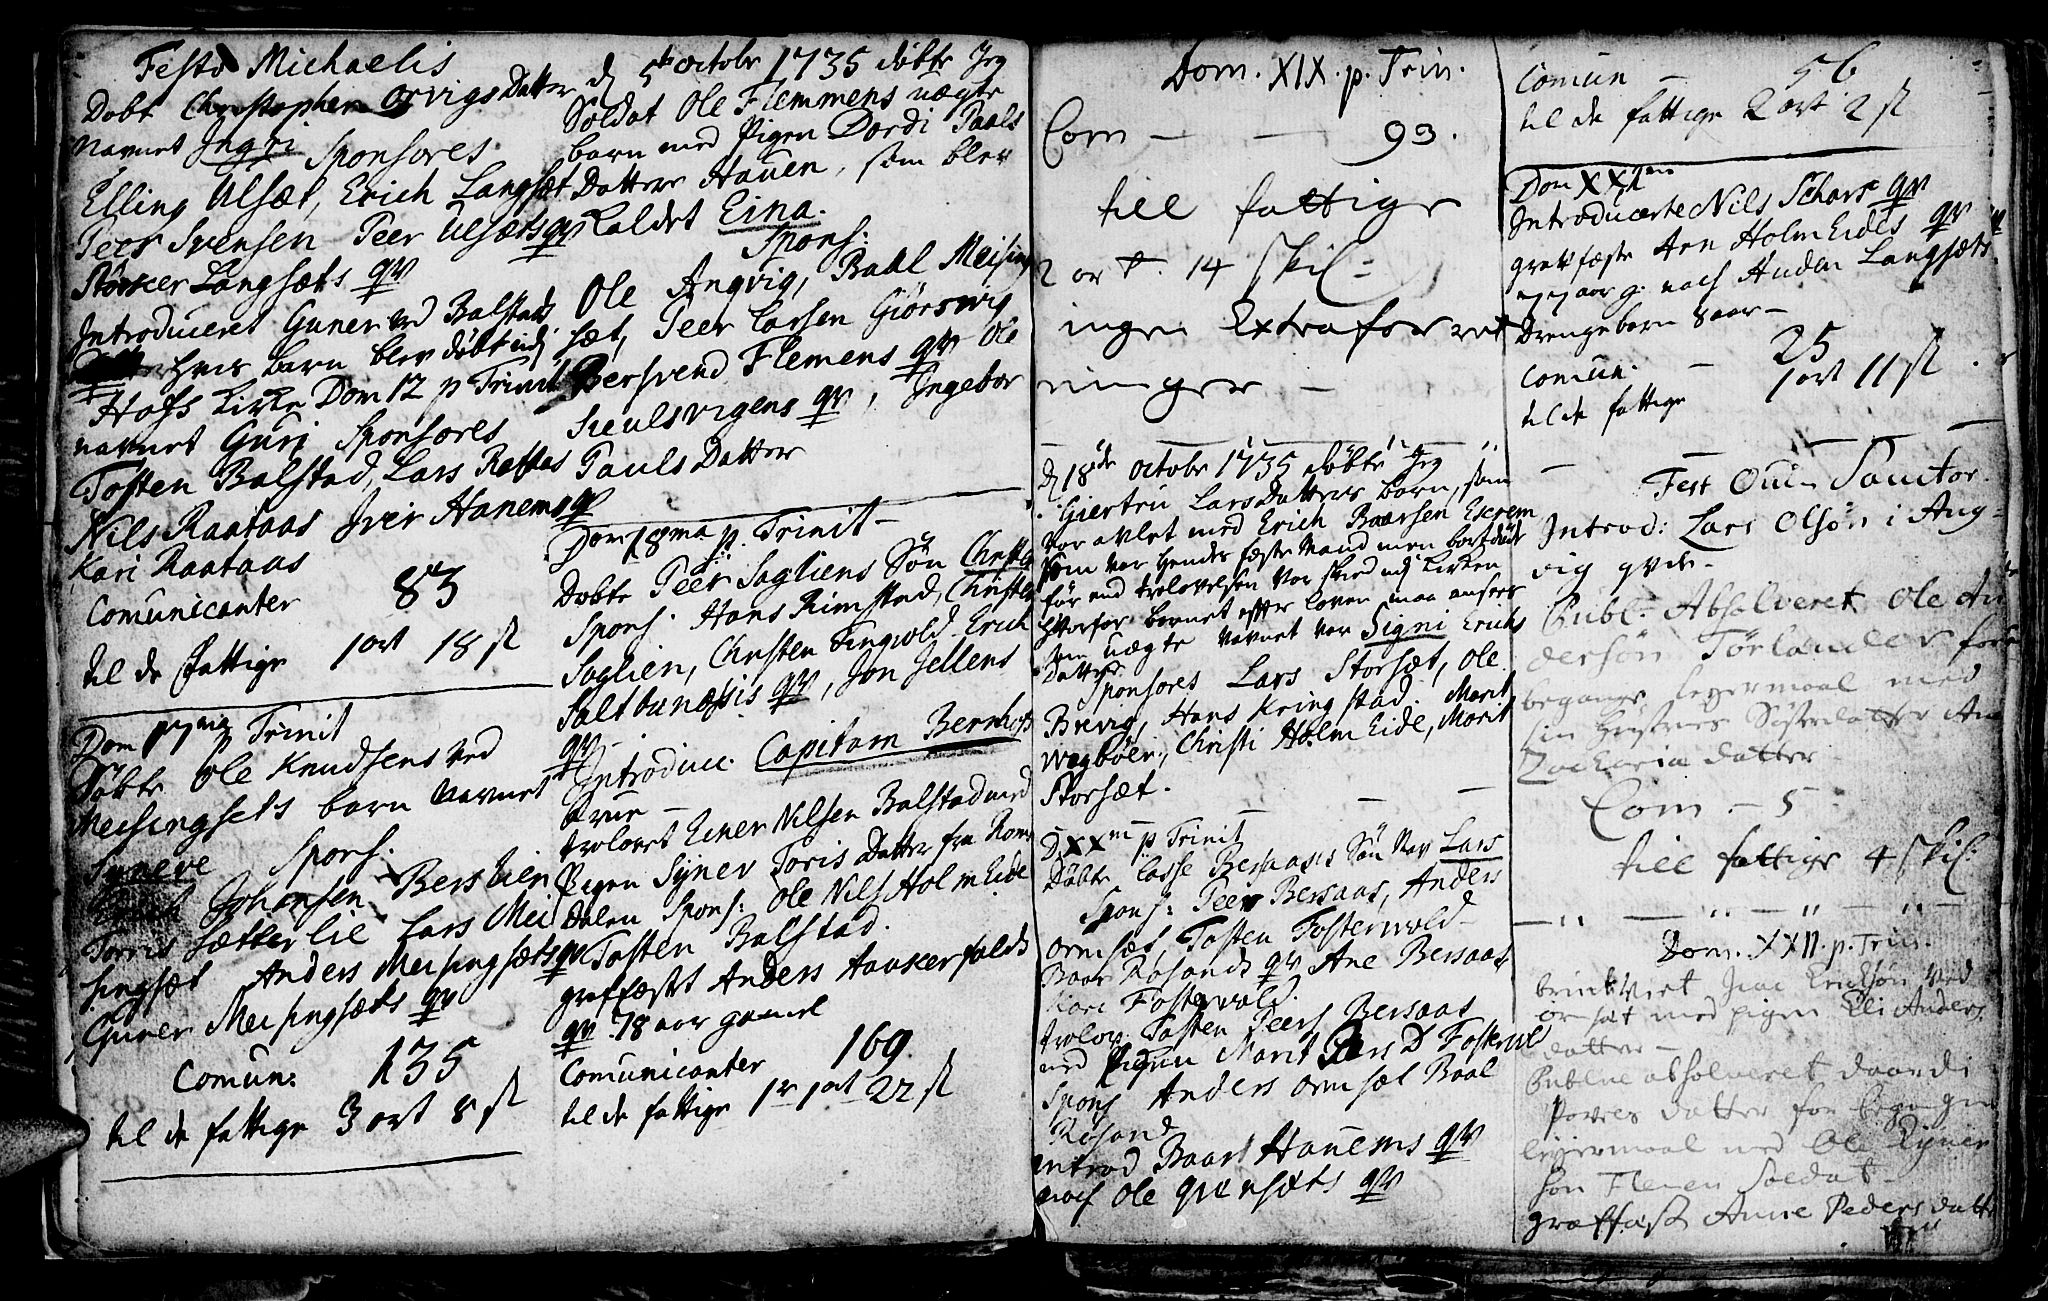 Festo Michaelis
Døbt Christopher Orvigs Datter
navnet Ingri
Sponsores
Elling Ulsæt, Erich Langsæt
Peer Svensen Peer Ulsæts qv
Langsæts qv
Introduceret Guner ved Balstad
hvis barn blev døbt udj
Hofs Kirke Dom 12 p Trinit
navnet Guri Sponsores
Tosten Balstad, Lars Rottas
Nils Raataas Iver Hanems qv
Kari Raataas
Comunicanter 83
til de fattige 1 ort 18 sl
Dom 17ma p Trinit
Døbte Ole Knudsens ved
Meisingsets barn navnet
Syneve Spons.
Johansen Berslien
Torris Sætterlie Lars Mei
singsæt Anders Meisingsæts qv
Guner Meisingsæts qv
Comun: 135
til de fattige 3 ort 8 sl
d 5te octobr 1735 døbte Jeg
Soldat Ole Flemmens uægte
barn med Pigen Dordi Pauls
Datter Hauen, som blev
kaldet Eina.
Spons:
Ole Angvig, Baal Meising
sæt, Peer Larsen Giørsvig
Bersvend Flemens qv Ole
qv, Ingebor
Pauls Datter
Dom 18ma p. Trinit
Døbte Peer Sagliens Søn Christen
Spons. Hans Rimstad, Christen
Saglien, Christen Tingvold Erich
qv, Jon Jellens
qv
Introduc. Capitam Bernhofs
Frue
trolovet Einer Nilsen Balstad med
Pigen Syner Toris Datter fra Roms
Dalen Spons: Ole Nils Holm Eide
Tosten Balstad.
graffæst Anders Aaskerfolds
qv 78 aar gamel
Comunicanter 169.
til de fattige 1 r 1 ort 22 sl
Dom. XIX. p. Trin.
Com — — 93.
till fattige
2 ort. 14 skil:
ingen Extraforret
ninger —
d 18de octobr 1735 døbte Jeg
Giertru Lars Datters barn, som
var avlet med Erich Baarsen Escrem
som var hendes fæste Mand men bortdøde
før end trolovelsen var skeed udj Kirken
hvorfor barnet efter loven maa ansees
som uægte navnet var Signi Erichs
Datter
Sponsores Lars Storsæt, Ole
Brevig, Hans Kringstad. Marit
Wagbøen, Christi Holm Eide, Marit
Storsæt.
D XXm p Trinit
Døbte Lasse Bersaases Søn Nav Lars
Spons: Peer Bersaas, Anders
Ormsæt, Tosten Fosterwold
Baar Røsands qv Ane Bersaas
Kari Fosterwold.
trolov Tosten Peers Bersaas
med Pigen Marit Lars D Fostervol
Spons Anders Ormsæt Baal
Røsand
introd Baars Hanems qv
nach Ole qv
Comun — 56
til de fattige 2 ort 2 sl
Dom XXI
Introducerte Nils Schars qv
graffæste Arn Holm Eides qv
aar g. nach Anden Langsæts
Drengebarn 8 aar —
Comun. — 25
til de fattige 1 ort 11 sl
Fest Omn Sanctor.
Introd: Lars Olsøn i Ang-
vig qvin.
Publ: Absolveret Ole An
dersøn Torlander for
begangne Leyermaal med
sin Hustrues Søsterdatter An
Zacharia datter
Com — 5
till fattige 4 skil:
Dom. XXII. p. Trin.
Erichsøn ved
Ormsæt med pigen Eli Anders
datter —
Publice absolveret
datter for begangen
leyermaal med Ole
søn Flemen Soldat
græffæst Anne Peders datt